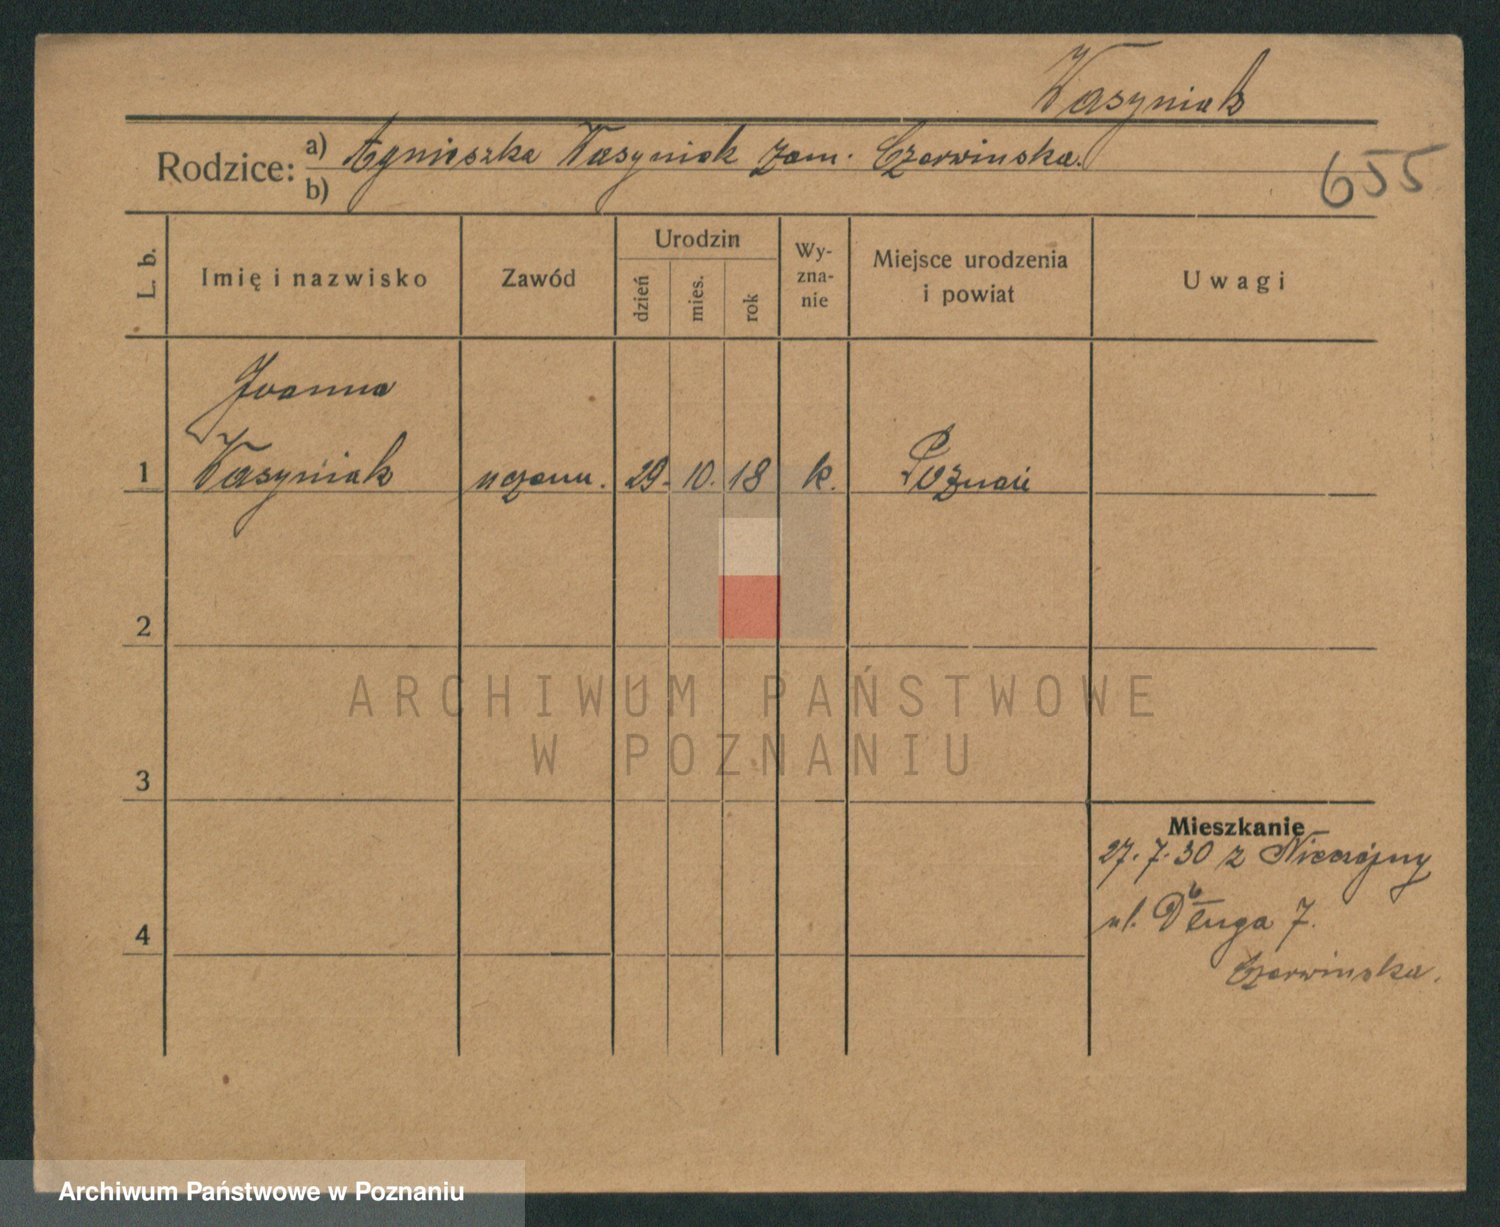 Wasyniak
Rodzice: a) Agnieszka Wasyniak zam. Czerwinska.
b)
655
L. b.
Imię i nazwisko
Zawód
Urodzin
dzień
mies.
rok
Wy-
zna-
nie
Miejsce urodzenia
i powiat
Uwagi
Joanna
1 Wasyniak uczenn. 29. 10. 18 k. Poznań
2
3
4
Mieszkanie
27. 7. 30 z
ul. Długa 7.
Czerwinska.
ARCHIWUM PAŃSTWOWE
W POZNANIU
Archiwum Państwowe w Poznaniu